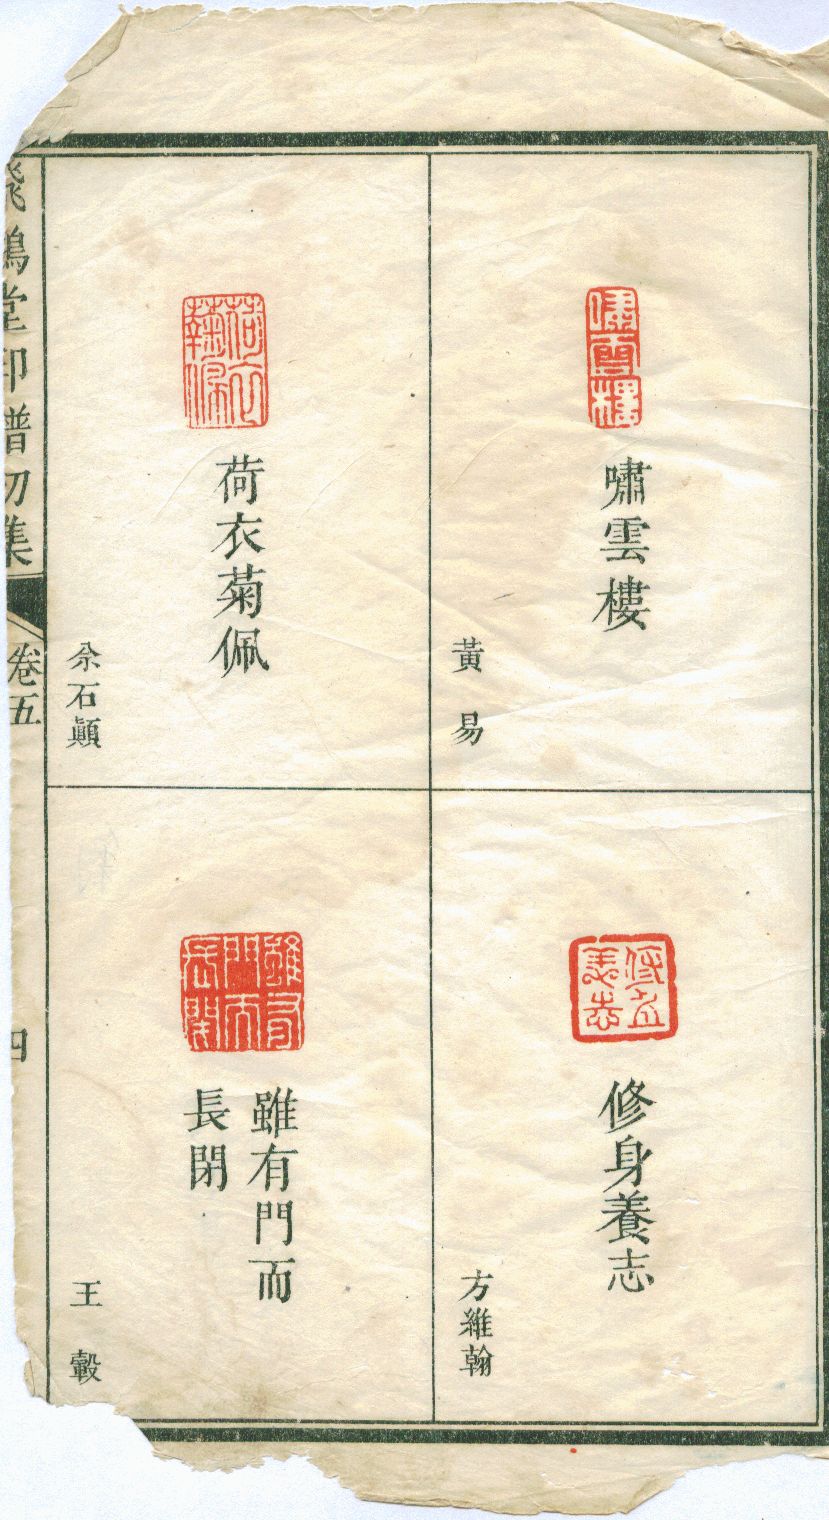 嘯雲樓
黃易
荷衣菊佩
佘石顚
修身養志
方維翰
雖有門而
長閉
王轂
飛鴻堂印譜初集
卷五
四